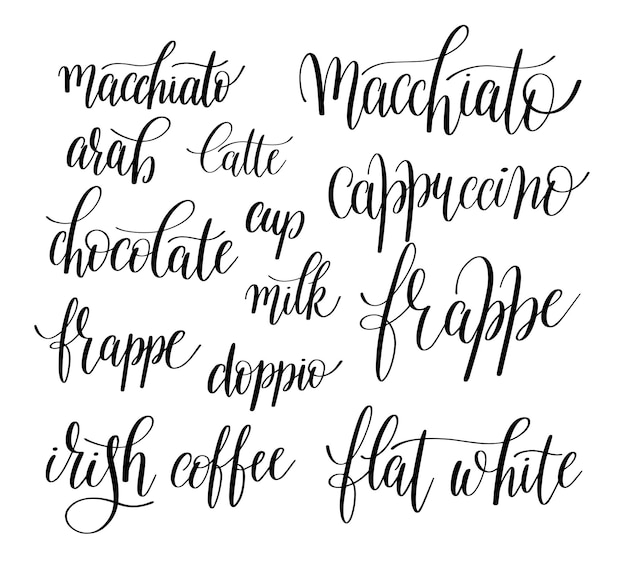 macchiato
Macchiato
arab
latte
cappuccino
chocolate
cup
milk
frappe
frappe
doppio
irish coffee
flat white